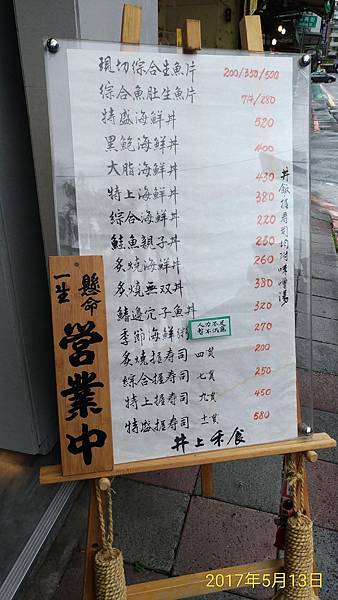 現切綜合生魚片 200/350/500
綜合魚肚生魚片 7片/280
特盛海鮮丼 520
黑鮑海鮮丼 400
大脂海鮮丼 430
特上海鮮丼 380
綜合海鮮丼 220
鮭魚親子丼 230
炙燒海鮮丼 260
炙燒無双丼 380
鰭邊穴子魚丼 320
季節海鮮粥 270
人力不足
暫不供應
炙燒握寿司 四貫 200
綜合握寿司 七貫 250
特上握寿司 九貫 450
特盛握寿司 十一貫 580
井上禾食
丼飯握寿司均附味噌湯
一生
懸命
営業中
2017年5月13日